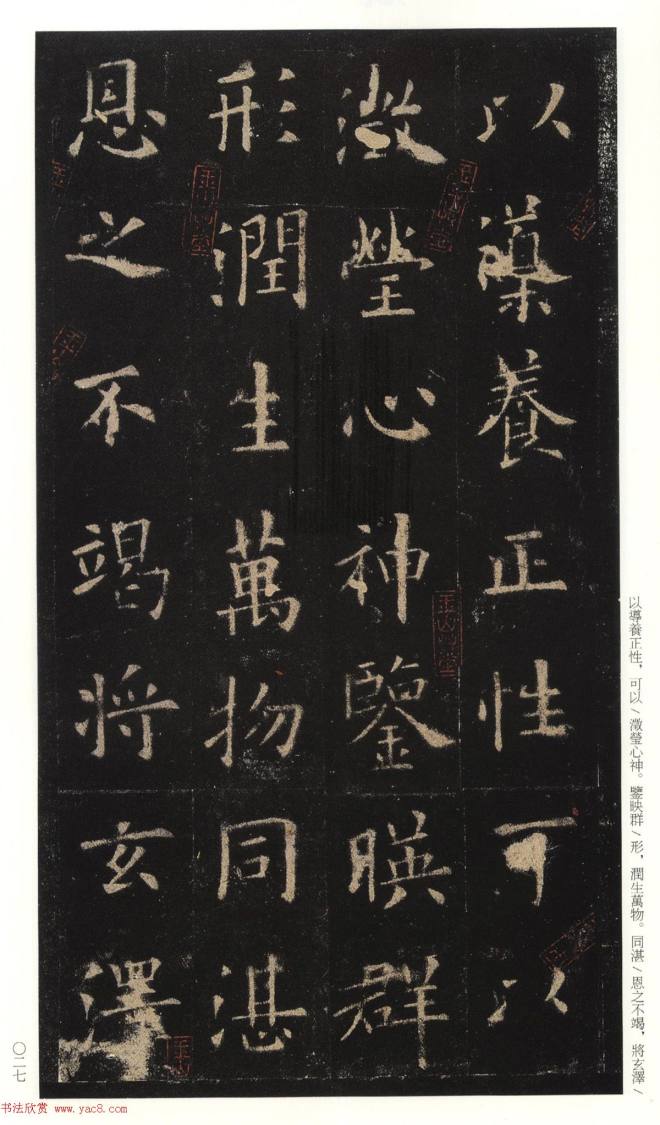 以導養正性可以
澂瑩心神鑒暎群
形潤生萬物同湛
恩之不竭將玄澤
以導養正性，可以／澂瑩心神。鑒映群／形，潤生萬物。同湛／恩之不竭，將玄澤／
〇二七
书法欣赏 www.yac8.com